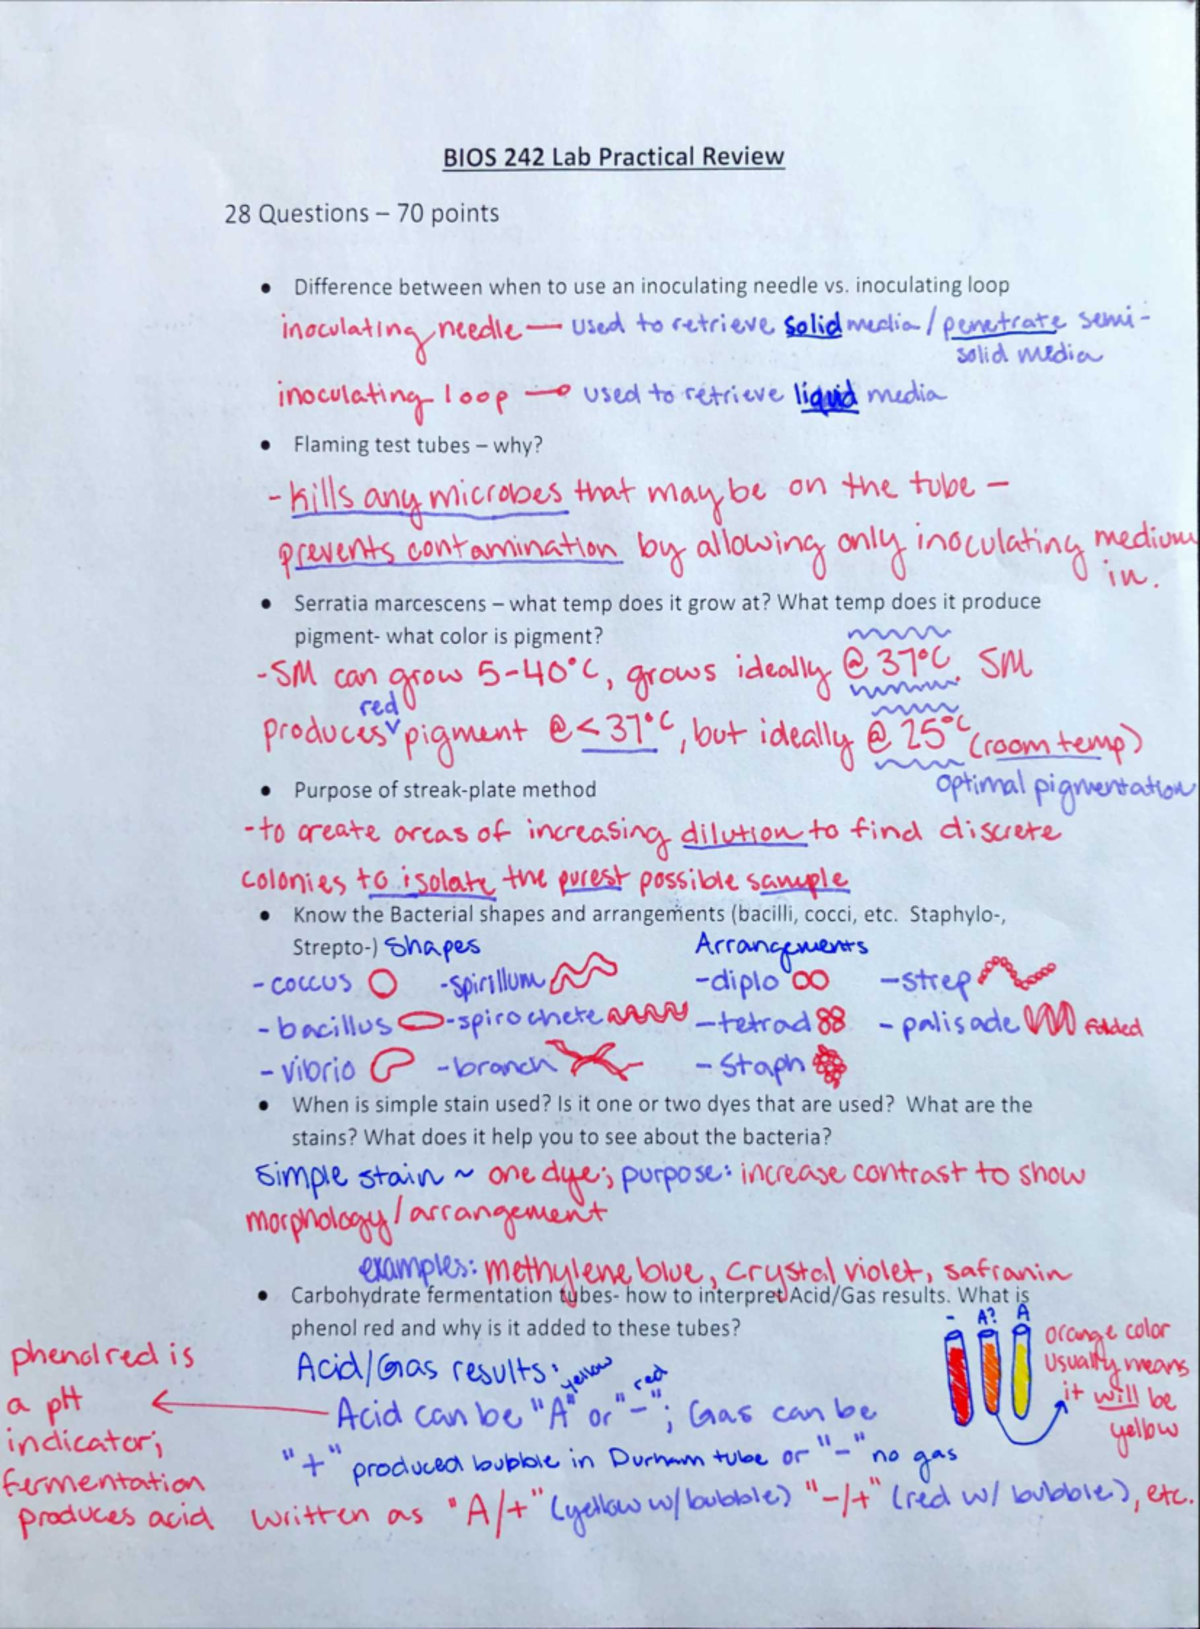 BIOS 242 Lab Practical Review
28 Questions – 70 points
• Difference between when to use an inoculating needle vs. inoculating loop
inoculating needle — used to retrieve solid media / penetrate semi-
solid media
inoculating loop —o used to retrieve liquid media
• Flaming test tubes – why?
- kills any microbes that may be on the tube –
prevents contamination by allowing only inoculating medium
in.
• Serratia marcescens – what temp does it grow at? What temp does it produce
pigment- what color is pigment?
- SM can grow 5-40°C, grows ideally @ 37°C. SM
red
produces pigment @ < 37°C, but ideally @ 25°C (room temp)
optimal pigmentation
• Purpose of streak-plate method
- to create areas of increasing dilution to find discrete
colonies to isolate the purest possible sample
• Know the Bacterial shapes and arrangements (bacilli, cocci, etc. Staphylo-,
Strepto-) Shapes Arrangements
- coccus - spirillum - diplo - strep
- bacillus - spirochete - tetrad - palisade folded
- vibrio - branch - staph
• When is simple stain used? Is it one or two dyes that are used? What are the
stains? What does it help you to see about the bacteria?
Simple stain ~ one dye; purpose: increase contrast to show
morphology/arrangement
examples: methylene blue, crystal violet, safranin
• Carbohydrate fermentation tubes- how to interpret Acid/Gas results. What is
phenol red and why is it added to these tubes?
- A? A
orange color
usually means
it will be
yellow
phenol red is
a pH
indicator;
fermentation
produces acid
Acid/Gas results:
yellow red
Acid can be "A" or "-"; Gas can be
"+" produced bubble in Durham tube or "-" no gas
written as "A/+" (yellow w/bubble) "-/+" (red w/ bubble), etc.